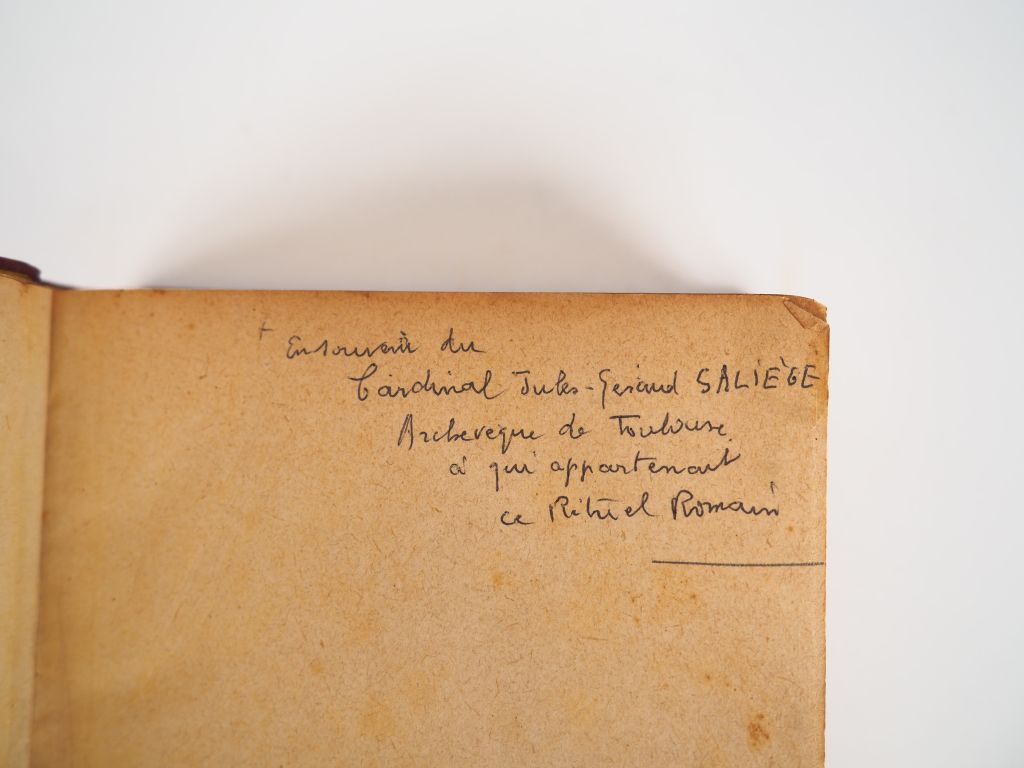 + En souvenir du
Cardinal Jules-Geraud SALIÈGE
Archeveque de Toulouse
à qui appartenait
ce Rituel Romain